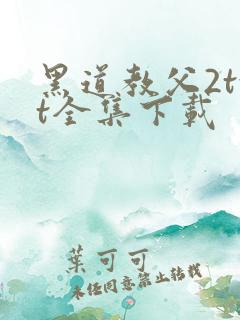 黑道教父2tx
t全集下载
葉可可
未经同意禁止转载